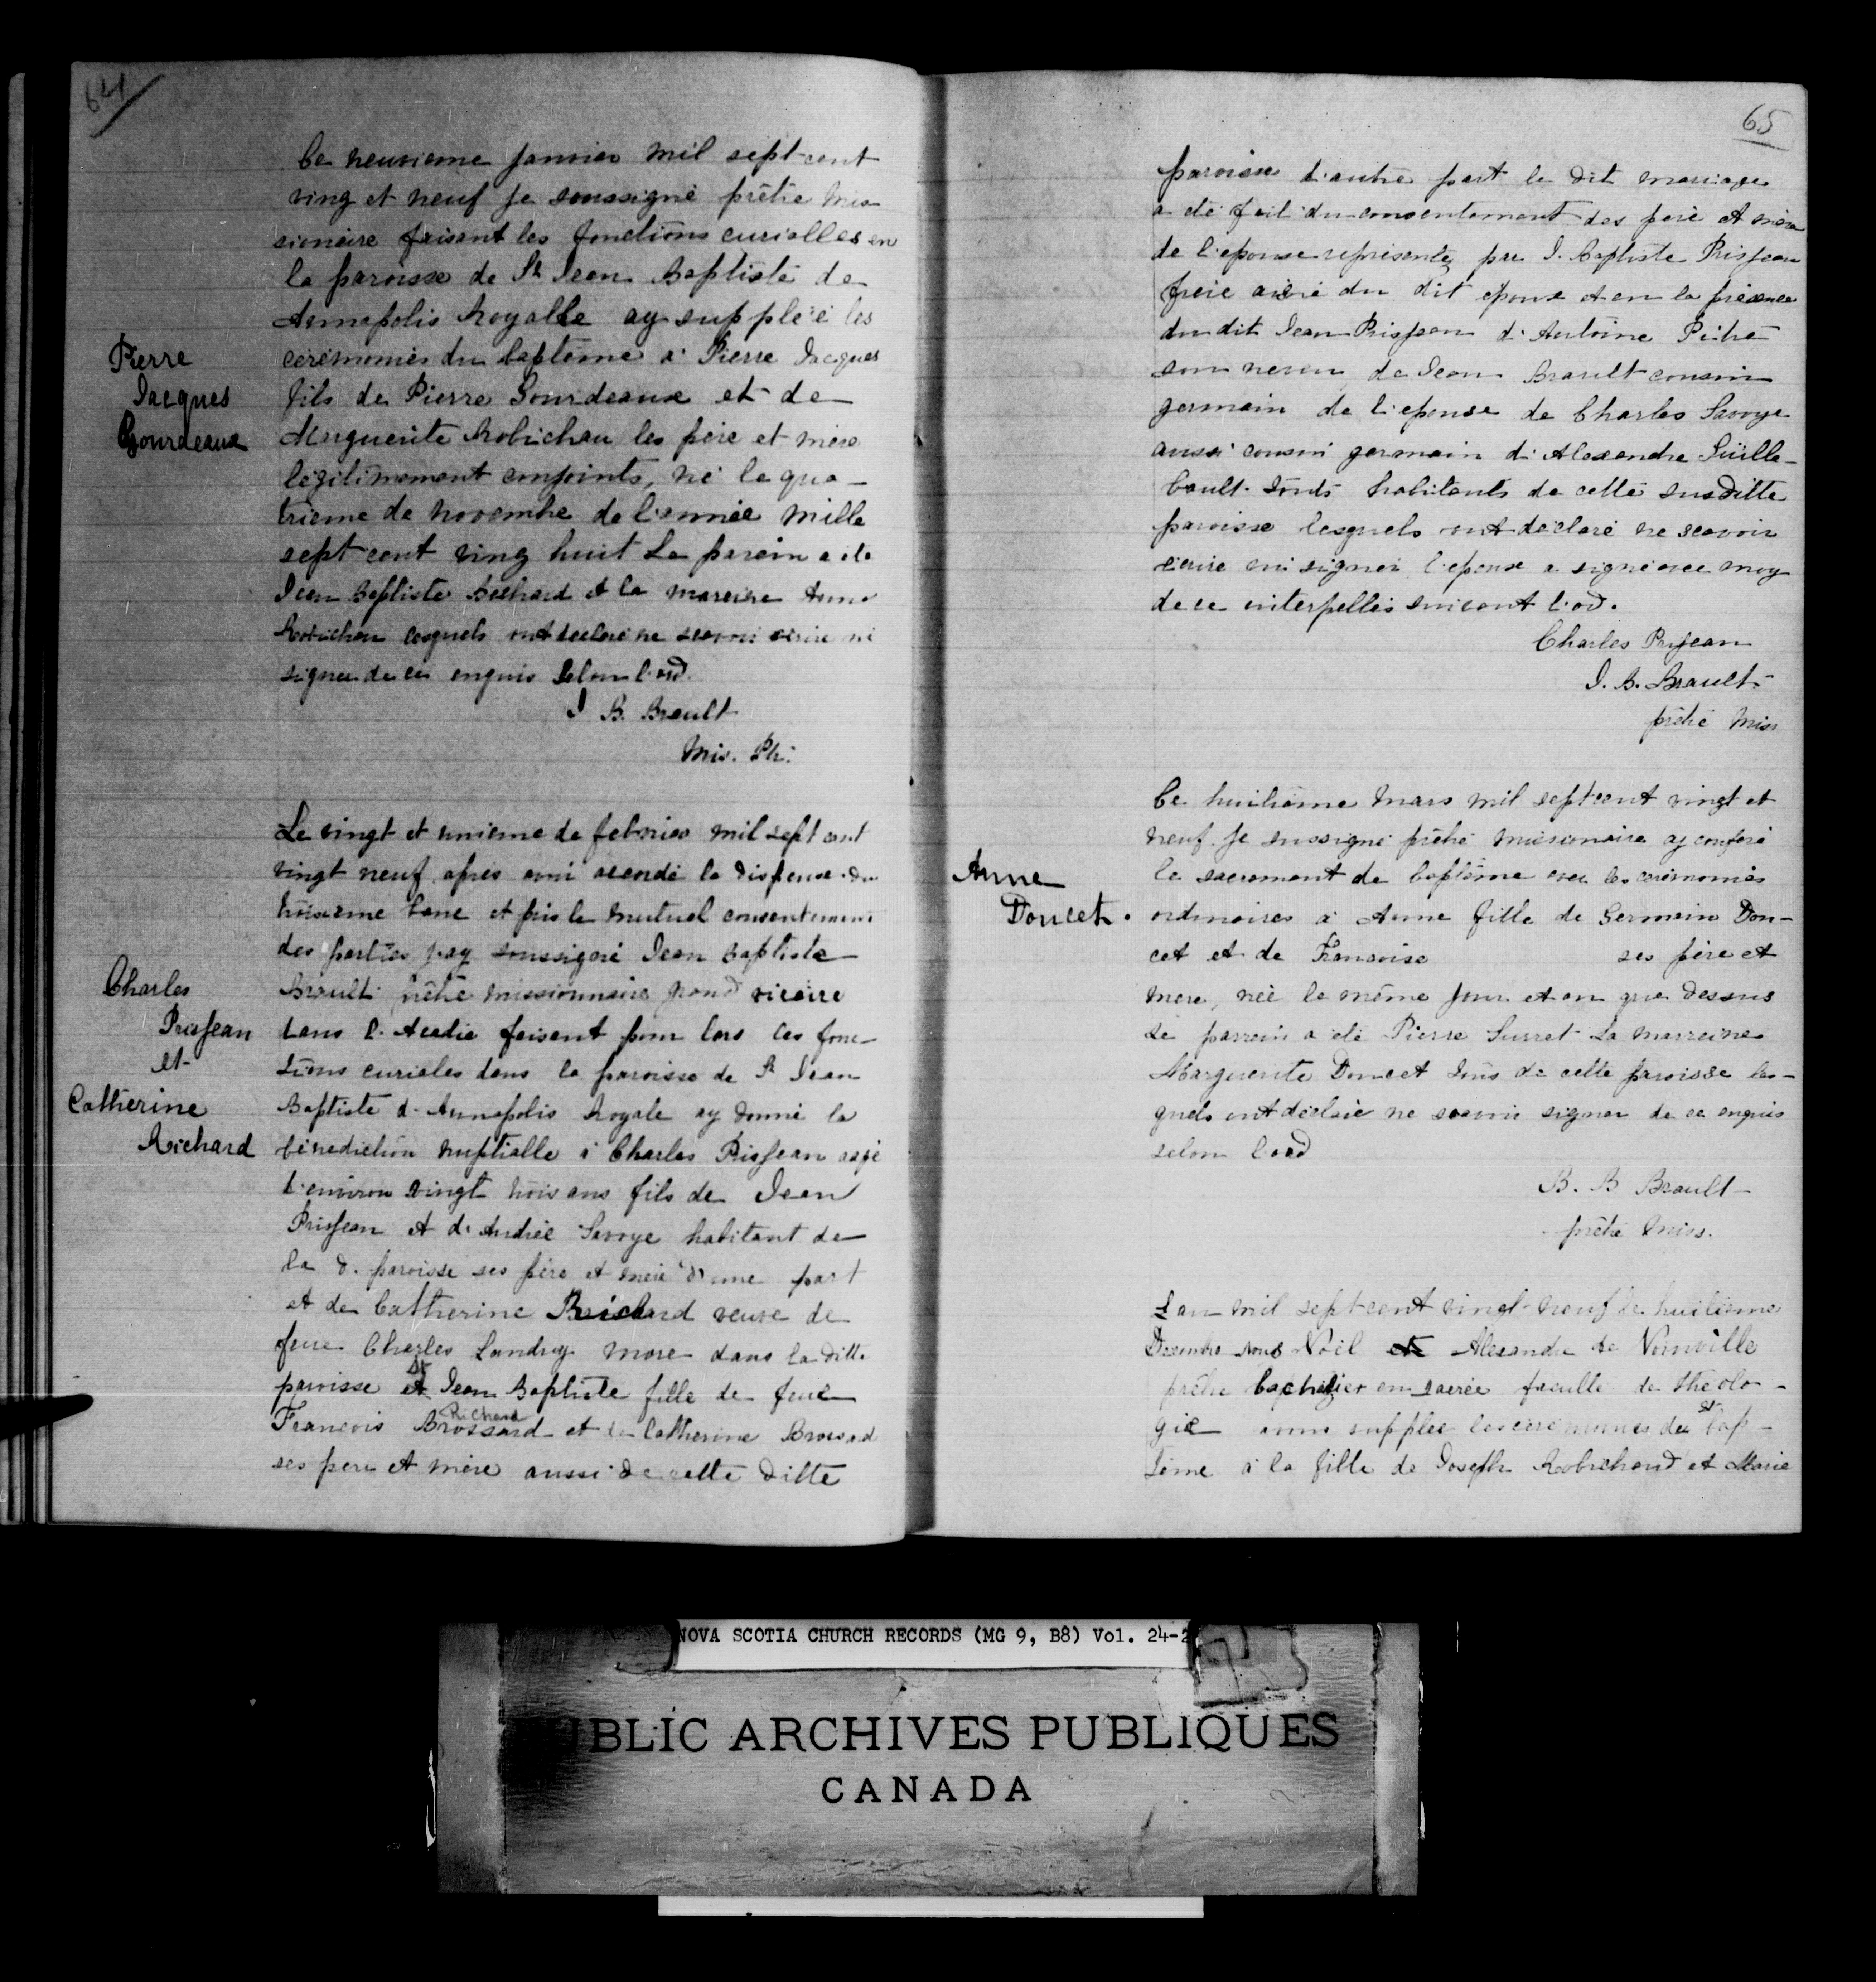 64
Ce neuvieme Janvier mil sept cent
ving et neuf Je soussigné prêtre mis
sionaire faisant les fonctions curialles en
la paroisse de St Jean Baptiste de
Annapolis Royalle ay suppléé les
Pierre
Jacques
Gourdeaux
ceremonies du baptême a Pierre Jacques
fils de Pierre Gourdeaux et de
Marguerite Robichau les père et mère
légitimement conjoints, né le qua-
trieme de novembre de l'année mille
sept cent ving huit Le parein a ete
Jean Baptiste Bechard et la mareine Anne
Robichau lesquels ont declaré ne scavoir ecrire ni
signer de ce enquis selon l'ord.
J B. Brault
Mis. Ptr.
Le vingt et unieme de febvrier mil sept cent
vingt neuf après avoir acordé la dispense du
troisieme banc et pris le mutuel consentement
des parties jay soussigné Jean Baptiste
Charles
Prisjean
et
Catherine
Richard
Brault prêtre missionnaire grand vicaire
dans l'Acadie faisant pour lors les fonc-
tions curiales dans la paroisse de St Jean
Baptiste d'Annapolis Royale ay donné la
bénédiction nuptialle à Charles Prisjean aagé
d'environ vingt trois ans fils de Jean
Prisjean et d'Andrée Savoye habitant de
la d. paroisse ses père et mère d'une part
et de Catherine Richard veuve de
feue Charles Landry more dans la ditte
paroisse St Jean Baptiste fille de feue
François Brossard Richard et de Catherine Brossard
ses pere et mère aussi de cette ditte
65
paroisse d'autre part le dit mariage
a été fait du consentement des père et mère
de l'epouse représenté par J. Baptiste Prisjean
frère ainé du dit epoux et en la présence
du dit Jean Prisjean d'Antoine Pitre
son neveu, de Jean Brault cousin
germain de l'epouse de Charles Savoye
aussi cousin germain d'Alexandre Guille-
bault touts habitants de cette susditte
paroisse lesquels ont déclaré ne scavoir
écrire ni signer l'epoux a signé avec moy
de ce interpellés suivant l'od.
Charles Prisjean
J. B. Brault
prêtre Miss
Ce huitième Mars mil sept cent vingt et
neuf Je sussigné prêtré missionaire ay conferé
Anne
Doucet.
le sacrement de baptême avec les ceremonies
ordinaires a Anne fille de Germain Dou-
cet et de Francoise ses père et
mere, née le même jour et an que dessus
Le parrain a été Pierre Surret La marreine
Marguerite Doucet tous de cette paroisse les-
quels ont déclaré ne scavoir signer de ce enquis
selon l'ord
B. B Brault
prêtre Miss.
L'an mil sept cent vingt neuf le huitieme
Decembre nous Noël Alexandre de Noinville
prêtre bachelier en sacrée faculté de théolo-
gie avons supplée les ceremonies du St bap-
tême à la fille de Joseph Robichaud et Marie
NOVA SCOTIA CHURCH RECORDS (MG 9, B8) Vol. 24-2
PUBLIC ARCHIVES PUBLIQUES
CANADA